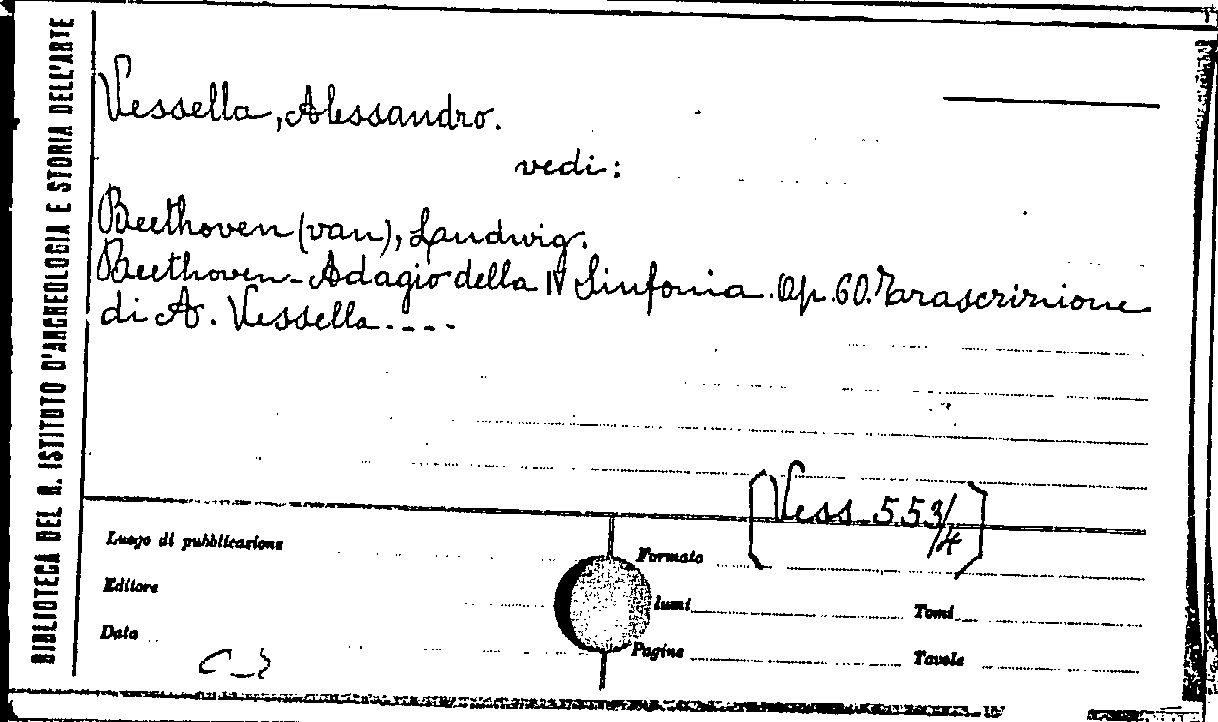 BIBLIOTECA DEL R. ISTITUTO D'ARCHEOLOGIA E STORIA DELL'ARTE
Vessella, Alessandro.
vedi:
Beethoven (van), Ludwig.
Beethoven - Adagio della IV Sinfonia. Op. 60. Trascrizione
di A. Vessella - - - -
[Vess. 553/4]
Luogo di pubblicazione
Formato
Editore
lumi
Tomi
Data
Pagine
Tavole